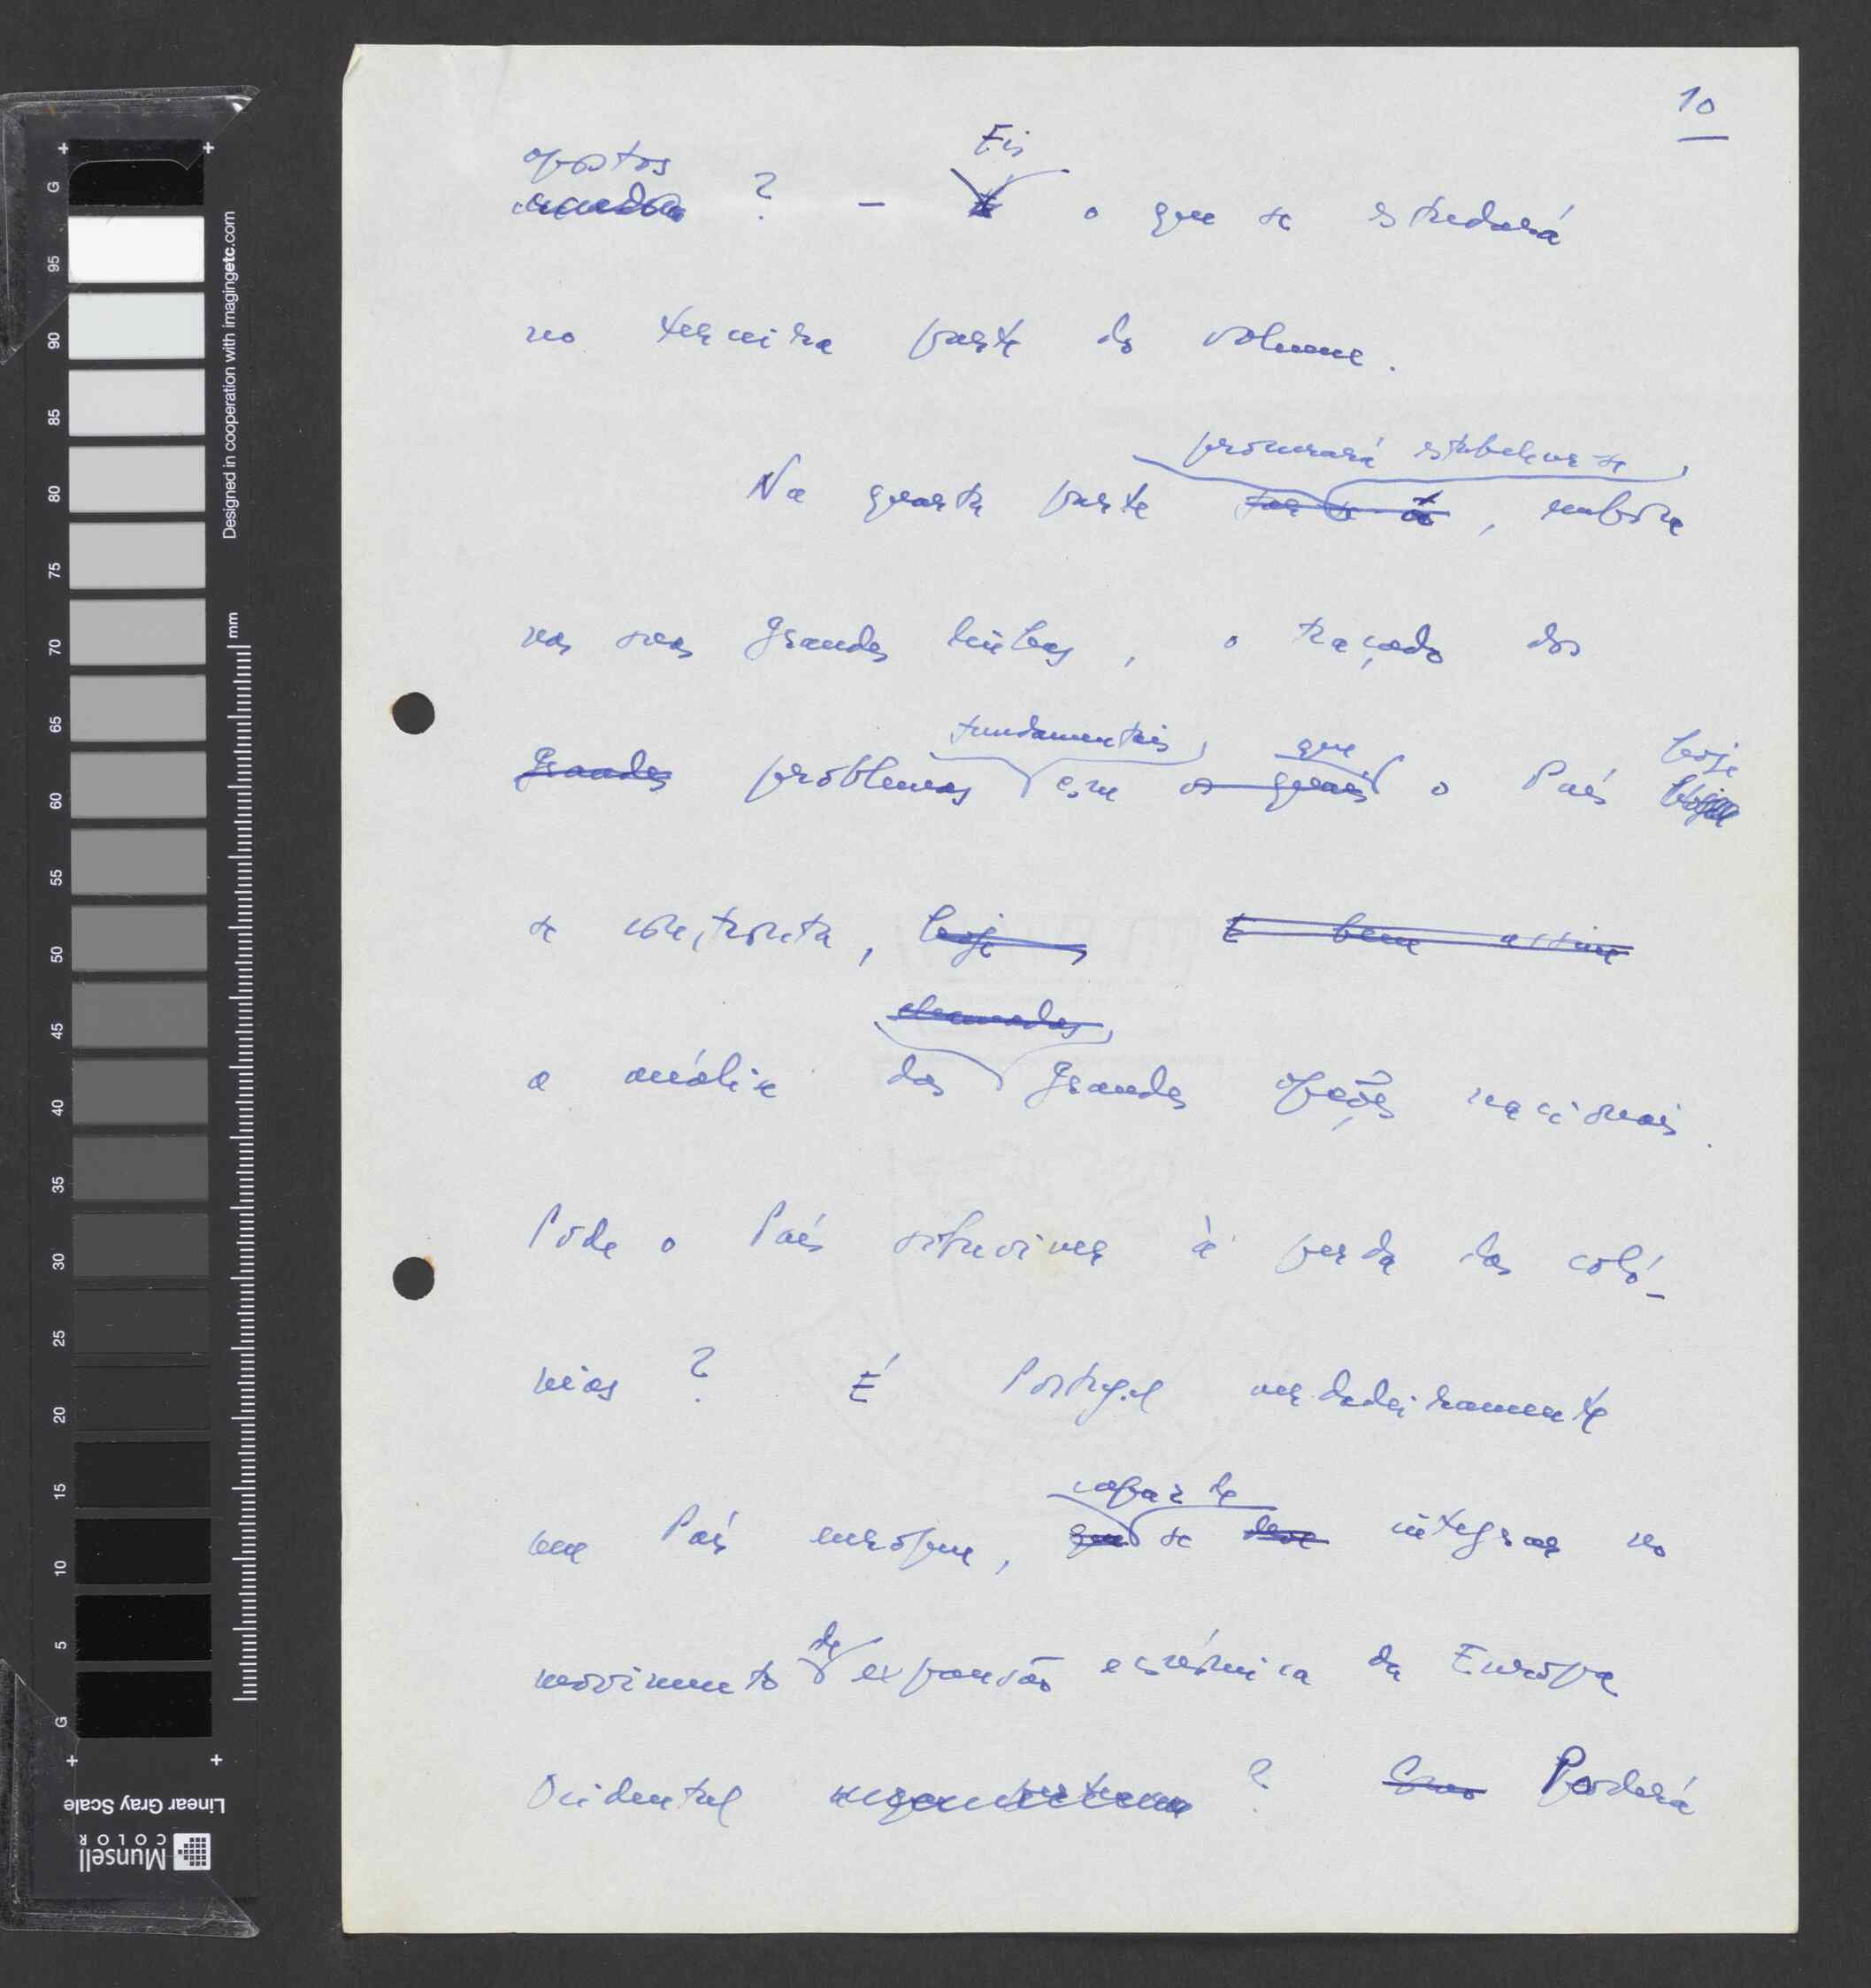 10
opostos ? - Eis o que se estudará
na terceira parte do volume.
Na quarta parte procurará estabelecer-se, embora
nas suas grandes linhas, o traçado dos
grandes problemas fundamentais com que o País hoje
se confronta, hoje E bem assim
a análise das grandes opções nacionais.
Pode o País sobreviver à perda das coló-
nias ? É Portugal verdadeiramente
um País europeu, capaz de se integrar no
movimento de expansão económica da Europa
Ocidental ? Poderá
G 95 90 85 80 75 70 65 60 55 50 45 40 35 30 25 20 15 10 5 G
Designed in cooperation with imagingetc.com
mm
Linear Gray Scale
Munsell
COLOR